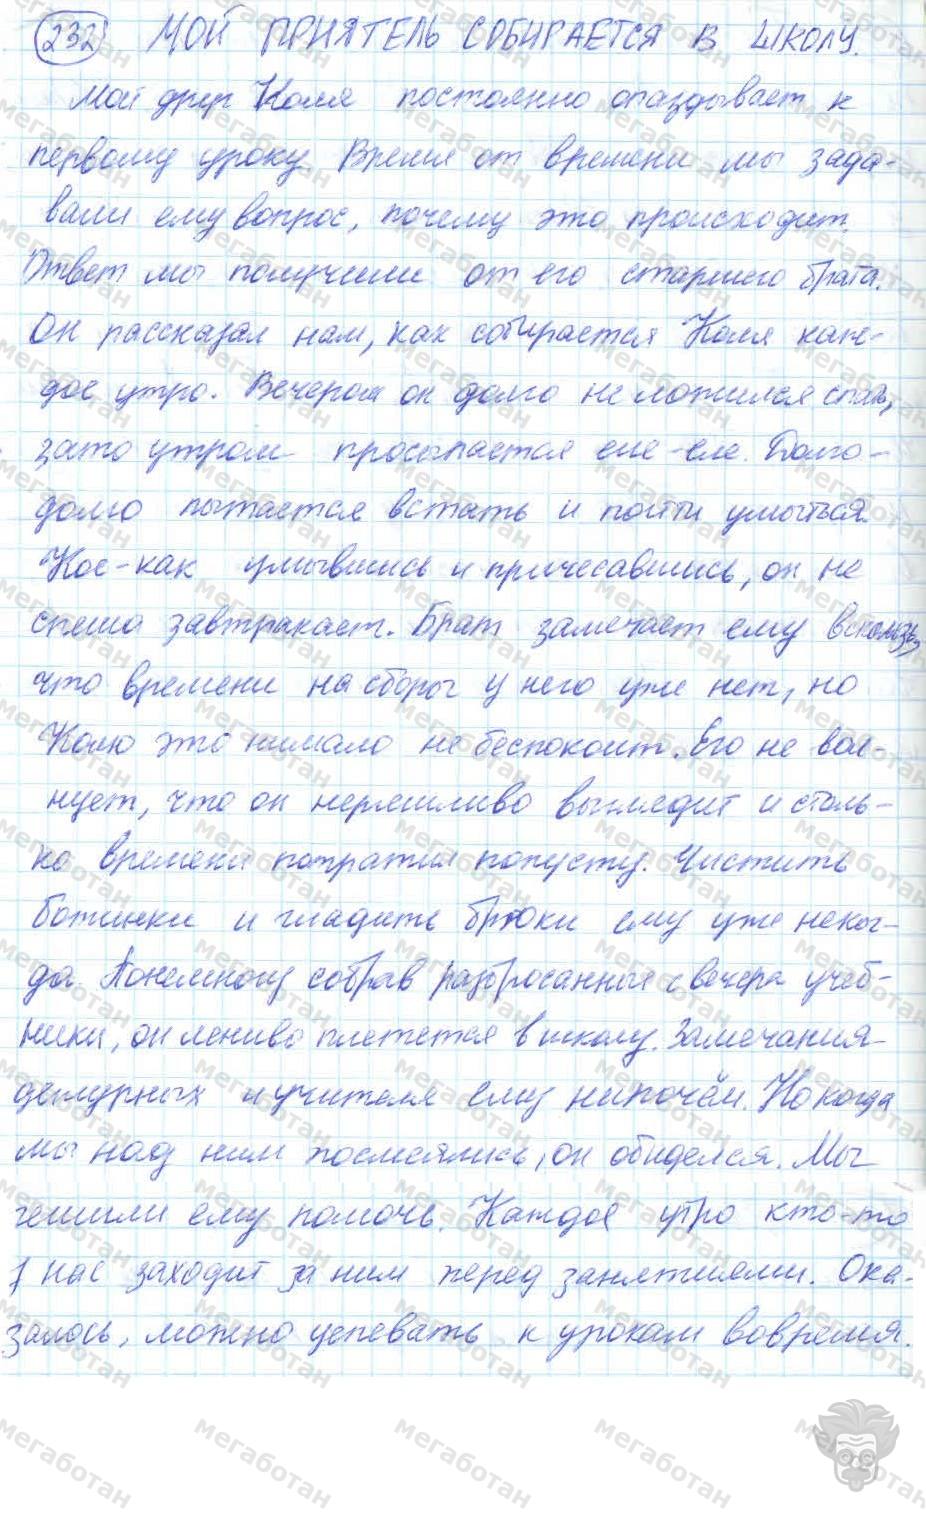 232 МОЙ ПРИЯТЕЛЬ СОБИРАЕТСЯ В ШКОЛУ.
Мой друг Коля постоянно опаздывает к
первому уроку. Время от времени мы зада-
вали ему вопрос, почему это происходит.
Ответ мы получили от его старшего брата.
Он рассказал нам, как собирается Коля каж-
дое утро. Вечером он долго не ложился спать,
зато утром просыпается еле-еле. Долго-
долго пытается встать и пойти умыться.
Кое-как умывшись и причесавшись, он не
спеша завтракает. Брат замечает ему вскользь,
что времени на сборы у него уже нет, но
Колю это нимало не беспокоит. Его не вол-
нует, что он неряшливо выглядит и столь-
ко времени потратил попусту. Чистить
ботинки и гладить брюки ему уже неког-
да. Понемногу собрав разбросанные с вечера учеб-
ники, он лениво плетется в школу. Замечания
дежурных и учителя ему нипочём. Но когда
мы над ним посмеялись, он обиделся. Мы
решили ему помочь. Каждое утро кто-то
из нас заходит за ним перед занятиями. Ока-
залось, можно успевать к урокам вовремя.
мегаботан